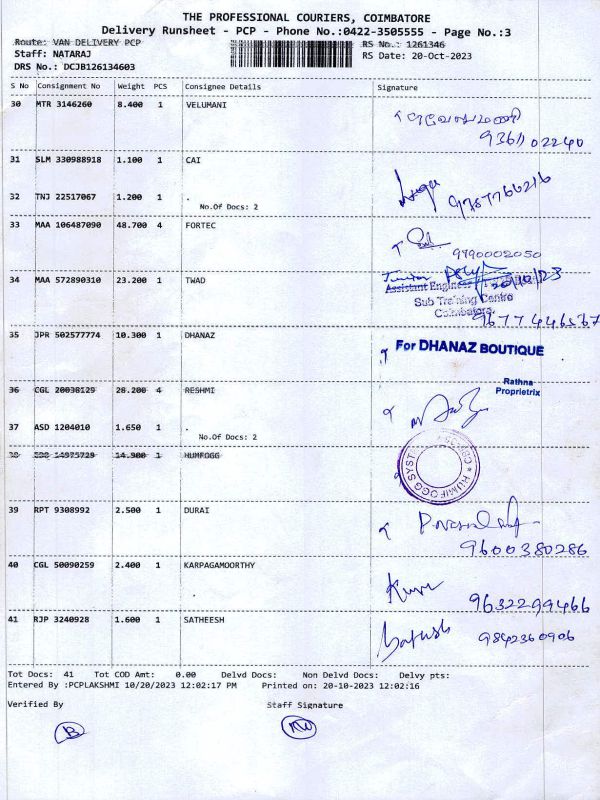 THE PROFESSIONAL COURIERS, COIMBATORE
Delivery Runsheet - PCP - Phone No.:0422-3505555 - Page No.:3
Route: VAN DELIVERY PCP
RS No.: 1261346
Staff: NATARAJ
RS Date: 20-Oct-2023
DRS No.: DCJB126134603
S No Consignment No Weight PCS Consignee Details Signature
30 MTR 3146260 8.400 1 VELUMANI
31 SLM 330988918 1.100 1 CAI
32 TNJ 22517067 1.200 1 .
No.Of Docs: 2
9787766216
33 MAA 106487090 48.700 4 FORTEC
9790002050
34 MAA 572890310 23.200 1 TWAD
Assistant Engineer
20/10/23
Sub Training Centre
Coimbatore.
9677446567
35 JPR 502577774 10.300 1 DHANAZ
For DHANAZ BOUTIQUE
Rathna
Proprietrix
36 CGL 20038129 28.200 4 RESHMI
37 ASD 1204010 1.650 1 .
No.Of Docs: 2
38 14975729 14.900 1 HUMFOGG
HUMIFOGG SYST
39 RPT 9308992 2.500 1 DURAI
9600380286
40 CGL 50090259 2.400 1 KARPAGAMOORTHY
9632299466
41 RJP 3240928 1.600 1 SATHEESH
Satush
9842360906
Tot Docs: 41 Tot COD Amt: 0.00 Delvd Docs: Non Delvd Docs: Delvy pts:
Entered By :PCPLAKSHMI 10/20/2023 12:02:17 PM Printed on: 20-10-2023 12:02:16
Verified By Staff Signature
B